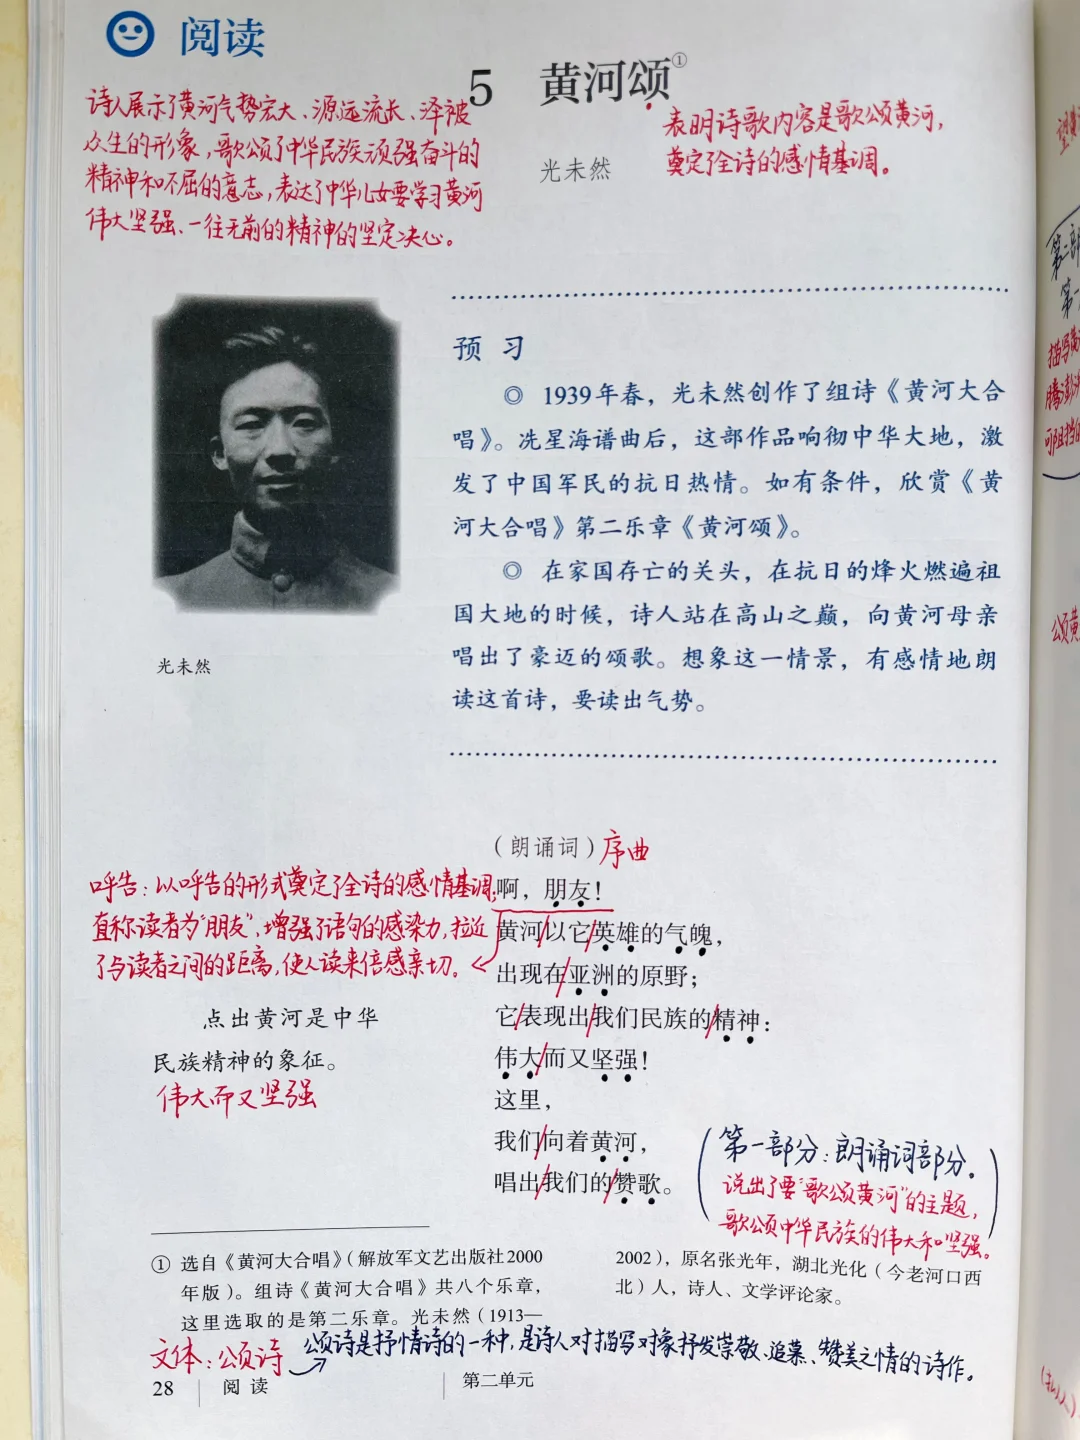 阅读
5 黄河颂①
诗人展示了黄河气势宏大、源远流长、泽被
众生的形象，歌颂了中华民族顽强奋斗的
精神和不屈的意志，表达了中华儿女要学习黄河
伟大坚强、一往无前的精神的坚定决心。
表明诗歌内容是歌颂黄河，
奠定了全诗的感情基调。
光未然
光未然
预习
◎ 1939年春，光未然创作了组诗《黄河大合
唱》。冼星海谱曲后，这部作品响彻中华大地，激
发了中国军民的抗日热情。如有条件，欣赏《黄
河大合唱》第二乐章《黄河颂》。
◎ 在家国存亡的关头，在抗日的烽火燃遍祖
国大地的时候，诗人站在高山之巅，向黄河母亲
唱出了豪迈的颂歌。想象这一情景，有感情地朗
读这首诗，要读出气势。
（朗诵词）序曲
呼告：以呼告的形式奠定了全诗的感情基调；
直称读者为“朋友”，增强了语句的感染力，拉近
了与读者之间的距离，使人读来倍感亲切。
啊，朋友！
黄河/以它/英雄的气魄，
出现在/亚洲的原野；
它/表现出/我们民族的/精神：
伟大/而又坚强！
这里，
我们/向着黄河，
唱出/我们的/赞歌。
点出黄河是中华
民族精神的象征。
伟大而又坚强
（第一部分：朗诵词部分。
说出了要“歌颂黄河”的主题，
歌颂中华民族的伟大和坚强。）
① 选自《黄河大合唱》（解放军文艺出版社2000
年版）。组诗《黄河大合唱》共八个乐章，
这里选取的是第二乐章。光未然（1913—
2002），原名张光年，湖北光化（今老河口西
北）人，诗人、文学评论家。
文体：颂诗
颂诗是抒情诗的一种，是诗人对描写对象抒发崇敬、追慕、赞美之情的诗作。
28 阅读 第二单元
第二部
第一
描写黄
腾澎湃
可阻挡的
颂黄